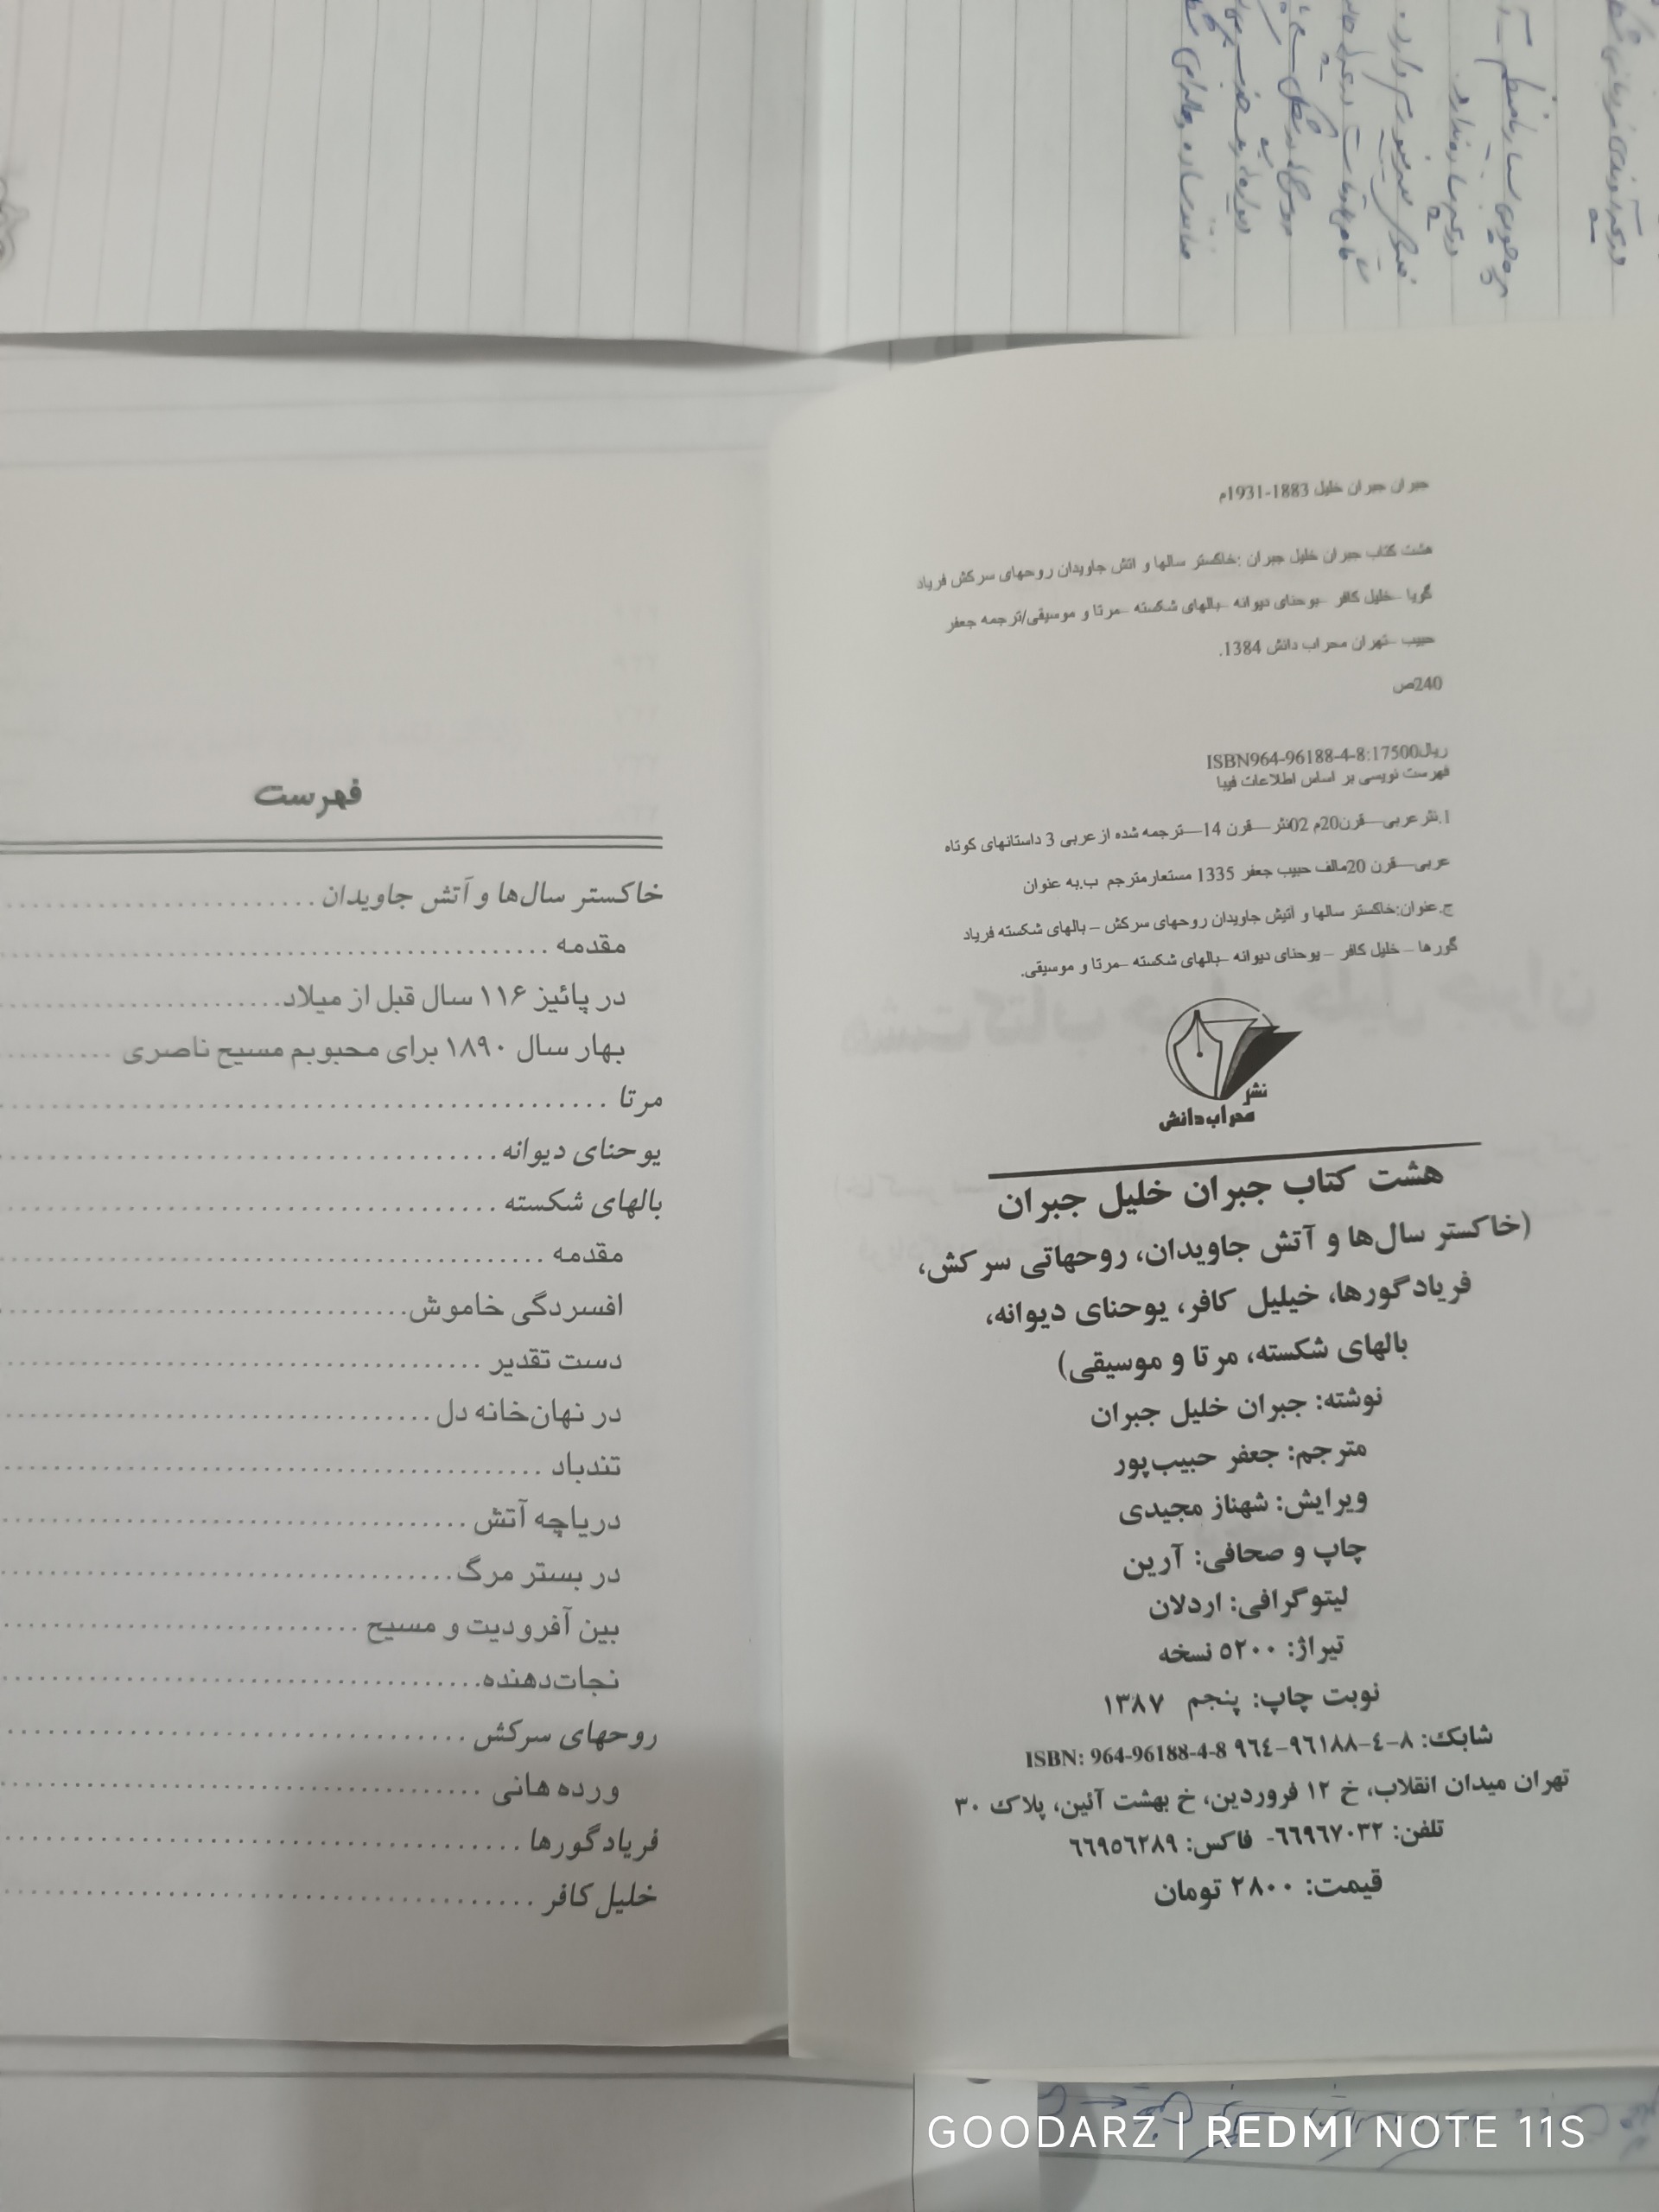 جبران جبران خلیل 1883-1931م
هشت کتاب جبران خلیل جبران :خاکستر سالها و اتش جاویدان روحهای سرکش فریاد
گویا –خلیل کافر –یوحنای دیوانه –بالهای شکسته –مرتا و موسیقی/ترجمه جعفر
حبیب –تهران محراب دانش 1384.
240ص
ISBN964-96188-4-8:17500ریال
فهرست نویسی بر اساس اطلاعات فیپا
1.نثرعربی—قرن20م 02نثر—قرن 14—ترجمه شده از عربی 3 داستانهای کوتاه
عربی—قرن 20مالف حبیب جعفر 1335 مستعارمترجم ب.به عنوان
ج.عنوان:خاکستر سالها و آتیش جاویدان روحهای سرکش – بالهای شکسته فریاد
گورها – خلیل کافر – یوحنای دیوانه –بالهای شکسته –مرتا و موسیقی.
نشر
محراب دانش
هشت کتاب جبران خلیل جبران
(خاکستر سال‌ها و آتش جاویدان، روحهاتی سرکش،
فریادگورها، خیلیل کافر، یوحنای دیوانه،
بالهای شکسته، مرتا و موسیقی)
نوشته: جبران خلیل جبران
مترجم: جعفر حبیب‌پور
ویرایش: شهناز مجیدی
چاپ و صحافی: آرین
لیتوگرافی: اردلان
تیراژ: ۵۲۰۰ نسخه
نوبت چاپ: پنجم ۱۳۸۷
شابک: ۸-٤-۹٦۱۸۸-۹٦٤ ISBN: 964-96188-4-8
تهران میدان انقلاب، خ ۱۲ فروردین، خ بهشت آئین، پلاک ۳۰
تلفن: ٦٦۹٦۷۰۳۲- فاکس: ٦٦۹۵٦۲۸۹
قیمت: ۲۸۰۰ تومان
فهرست
خاکستر سال‌ها و آتش جاویدان
مقدمه
در پائیز ۱۱۶ سال قبل از میلاد
بهار سال ۱۸۹۰ برای محبوبم مسیح ناصری
مرتا
یوحنای دیوانه
بالهای شکسته
مقدمه
افسردگی خاموش
دست تقدیر
در نهان‌خانه دل
تندباد
دریاچه آتش
در بستر مرگ
بین آفرودیت و مسیح
نجات‌دهنده
روحهای سرکش
ورده هانی
فریادگورها
خلیل کافر
GOODARZ | REDMI NOTE 11S